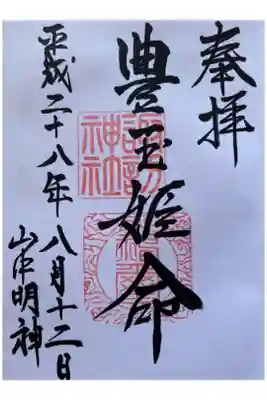 奉拝
豊玉姫命
諏訪神社
平成二十八年八月十二日
山中明神